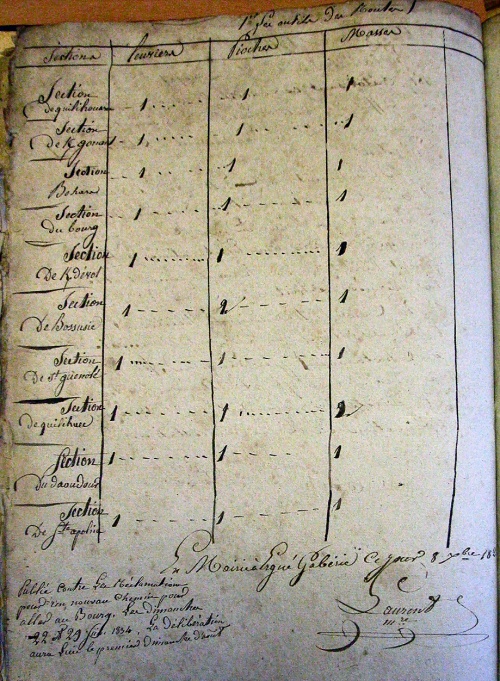 Sections Leuriers Pioches Masses
Section
de quilihouarn 1 1 1
Section
De K gouent 1 1 1
Section
Bohars 1 1 1
Section
du bourg 1 1 1
Section
De K dévot 1 1 1
Section
De Bossusic 1 2 1
Section
De St guenolé 1 1 1
Section
de quilihuec 1 1 2
Section
Du daoudour 1 1 1
Section
De Ste apoline 1 1 1
En Mairie Ergué Gabéric Ce jour 8
Publié contre les Réclamations
pour un nouveau chemin pour
aller au Bourg. Les dimanches
22 et 29 1834. La délibération
aura lieu le premier dimanche d'août
Laurent
mre